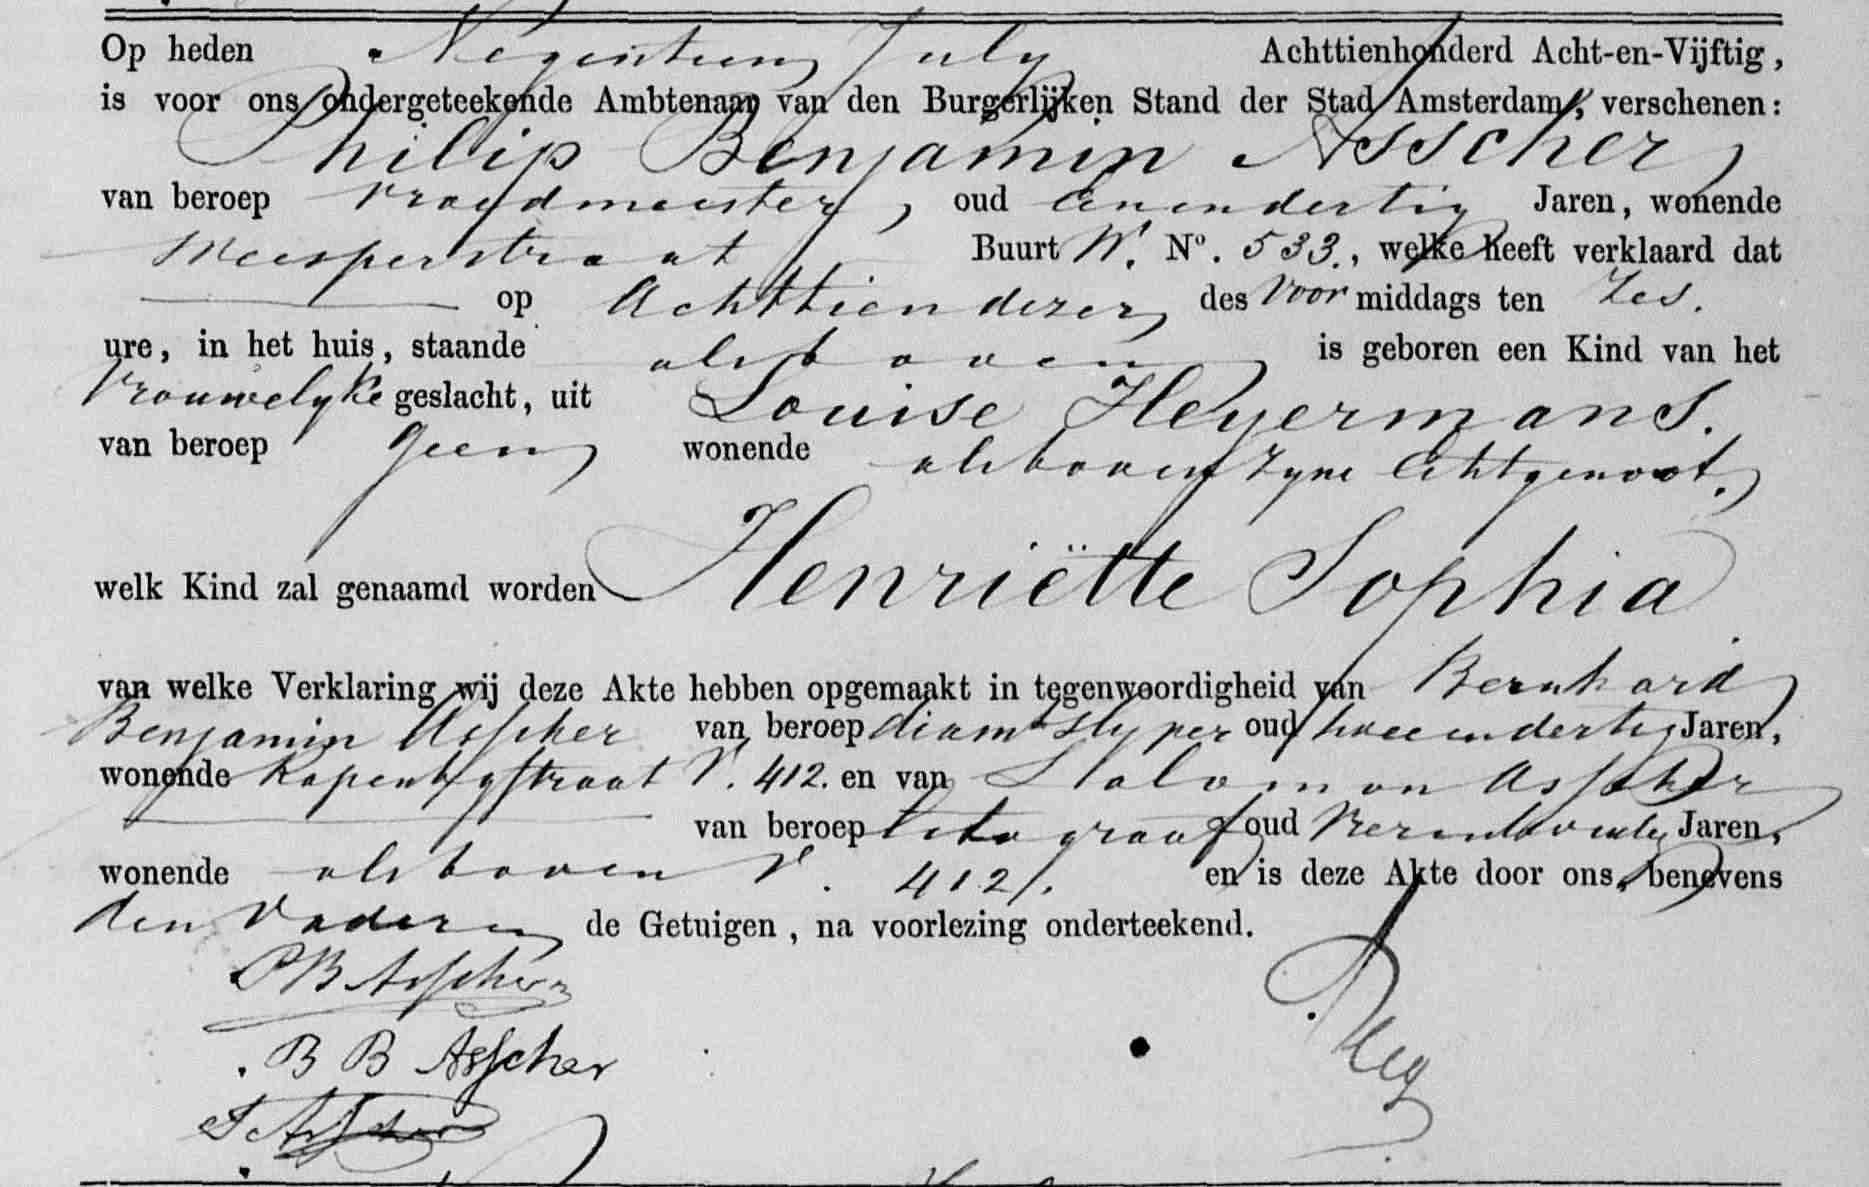 Op heden Negentien July Achttienhonderd Acht-en-Vijftig,
is voor ons ondergeteekende Ambtenaar van den Burgerlijken Stand der Stad Amsterdam, verschenen:
Philip Benjamin Asscher
van beroep , oud Eenendertig Jaren, wonende
Weesperstraat Buurt W. Nº. 533., welke heeft verklaard dat
op Achttien dezer des Voormiddags ten Zes.
ure, in het huis, staande als boven is geboren een Kind van het
Vrouwelyke geslacht, uit Louise Heyermans.
van beroep geen wonende als boven zyne Echtgenoot.
welk Kind zal genaamd worden Henriëtte Sophia
van welke Verklaring wij deze Akte hebben opgemaakt in tegenwoordigheid van Bernhard
Benjamin Asscher van beroep diamt slyper oud tweeendertig Jaren,
wonende Rapenbgstraat V. 412. en van Salomon Asscher
van beroep litograaf oud Jaren,
wonende als boven V. 412. en is deze Akte door ons, benevens
den Vader en de Getuigen, na voorlezing onderteekend.
PB Asscher
B B Asscher
S Asscher